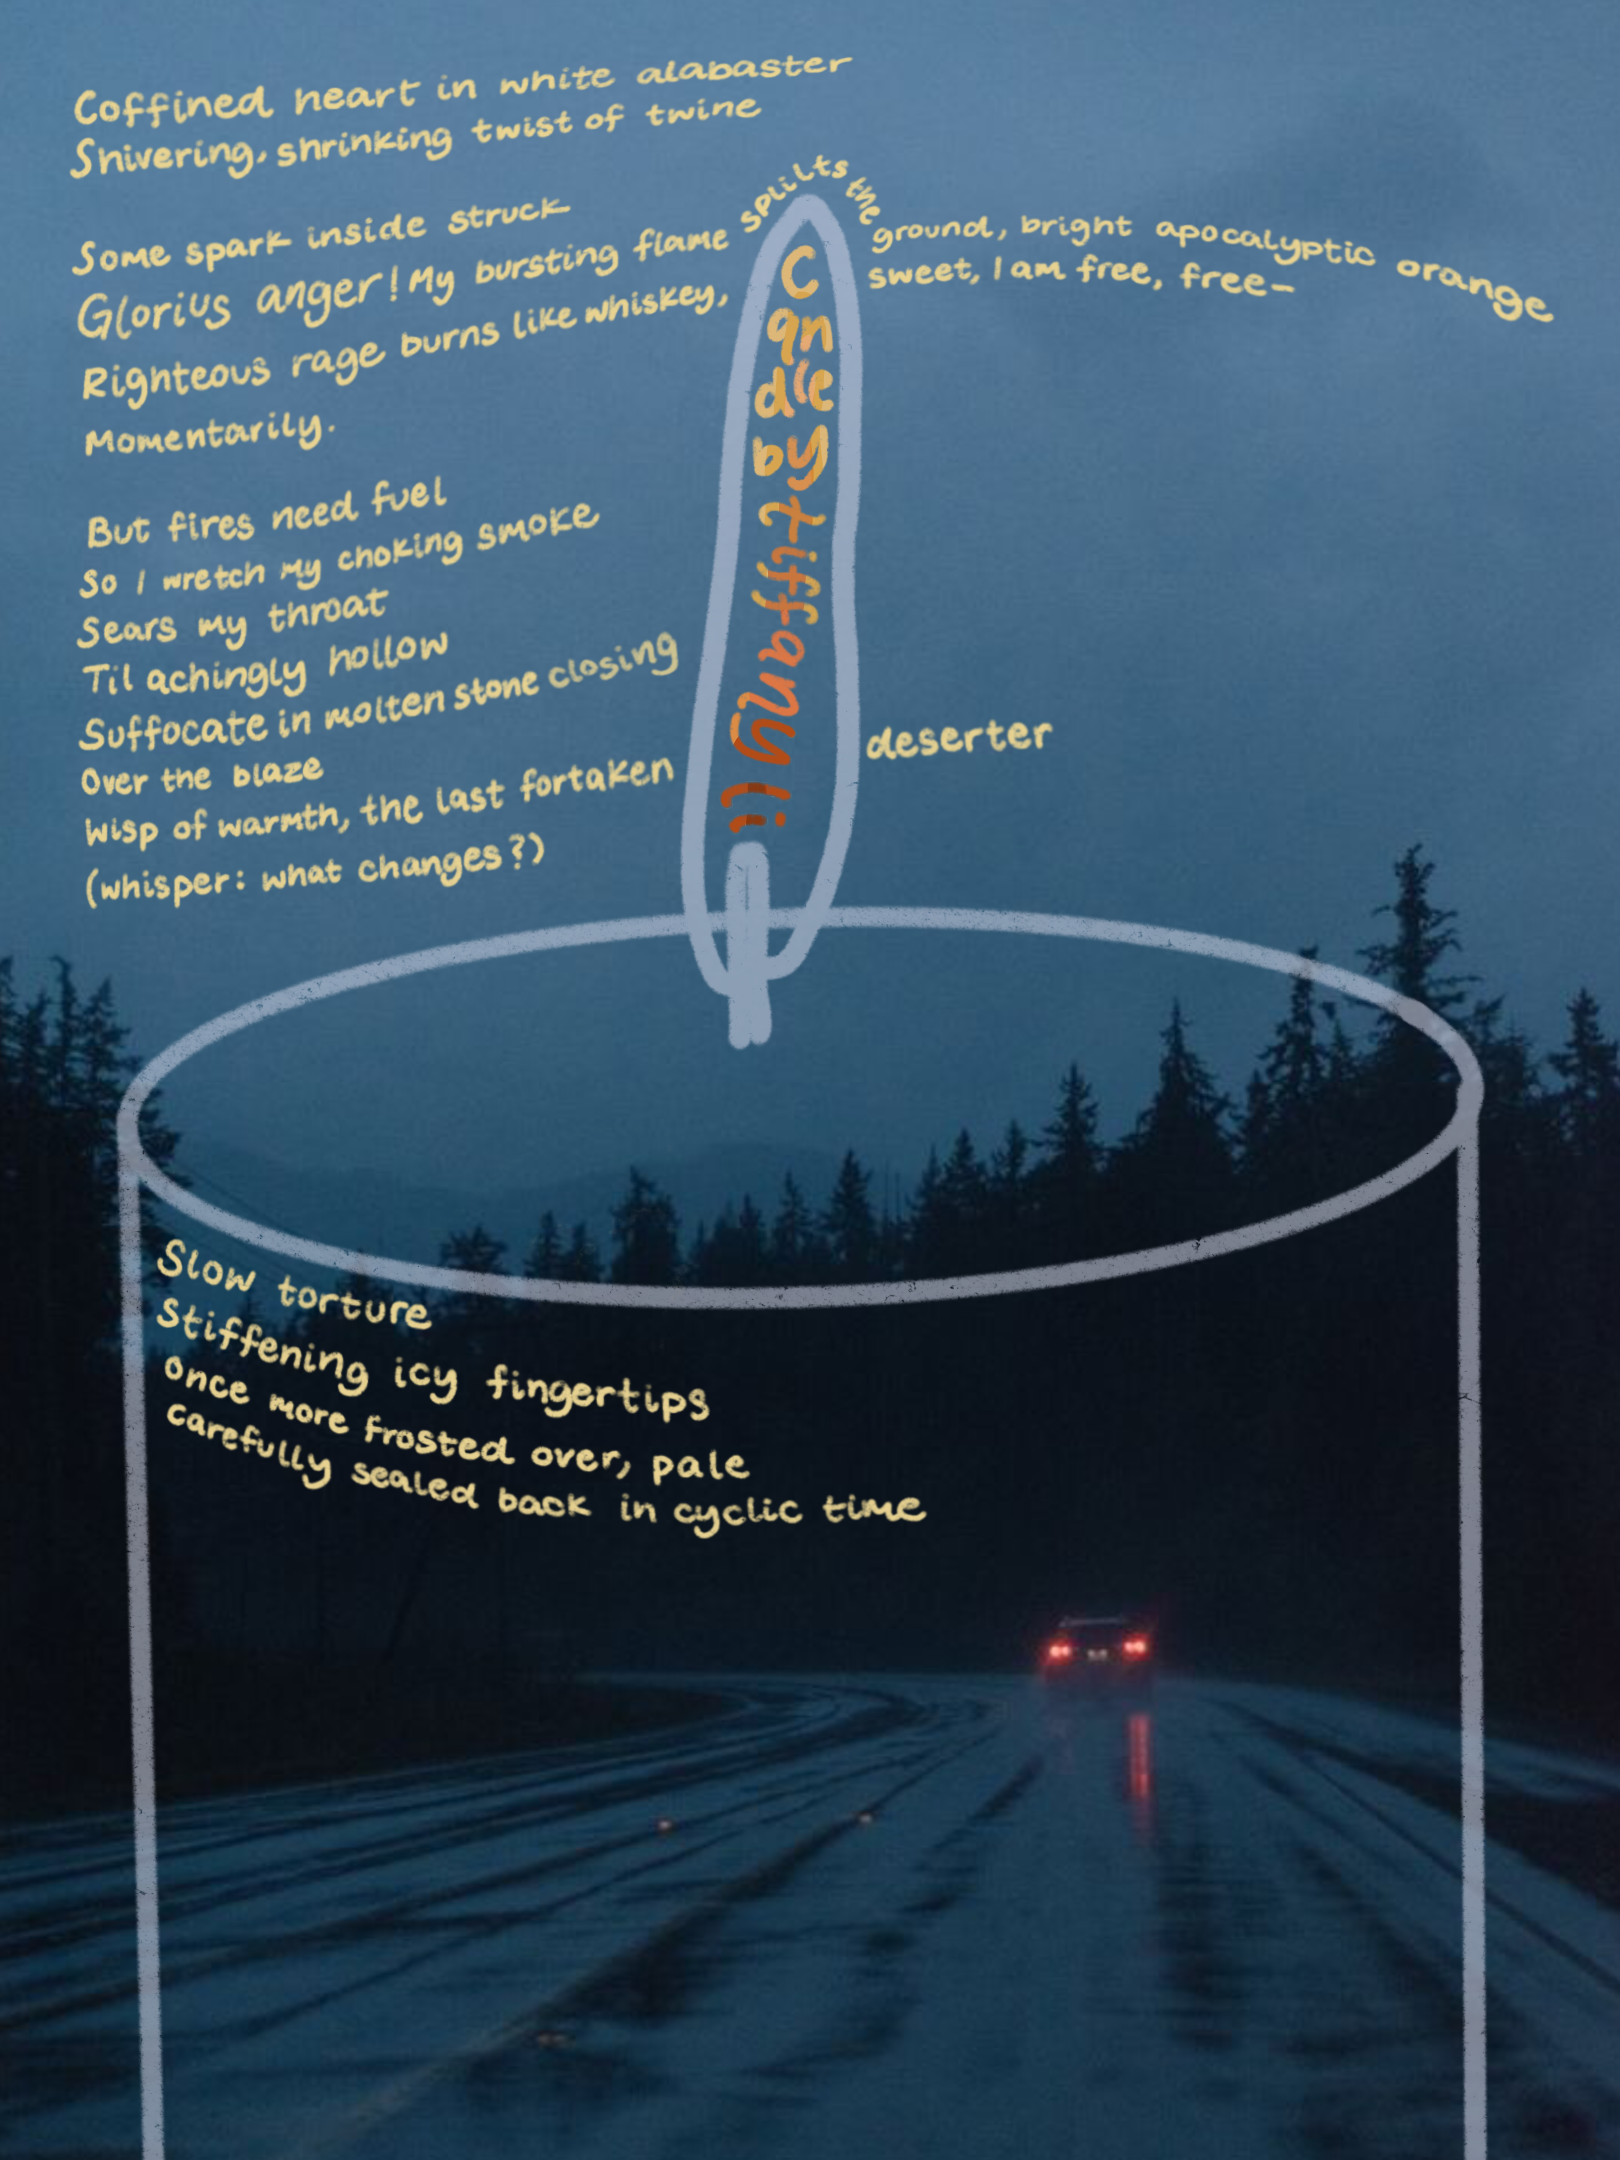 Coffined heart in white alabaster
Shivering, shrinking twist of twine
Some spark inside struck
Glorius anger! My bursting flame splilts the ground, bright apocalyptic orange
Righteous rage burns like whiskey, sweet, I am free, free-
Momentarily.
But fires need fuel
So I wretch my choking smoke
Sears my throat
Til achingly hollow
Suffocate in molten stone closing
Over the blaze
Wisp of warmth, the last fortaken deserter
(whisper: what changes?)
Candle
by
tiffany li
Slow torture
Stiffening icy fingertips
Once more frosted over, pale
carefully sealed back in cyclic time